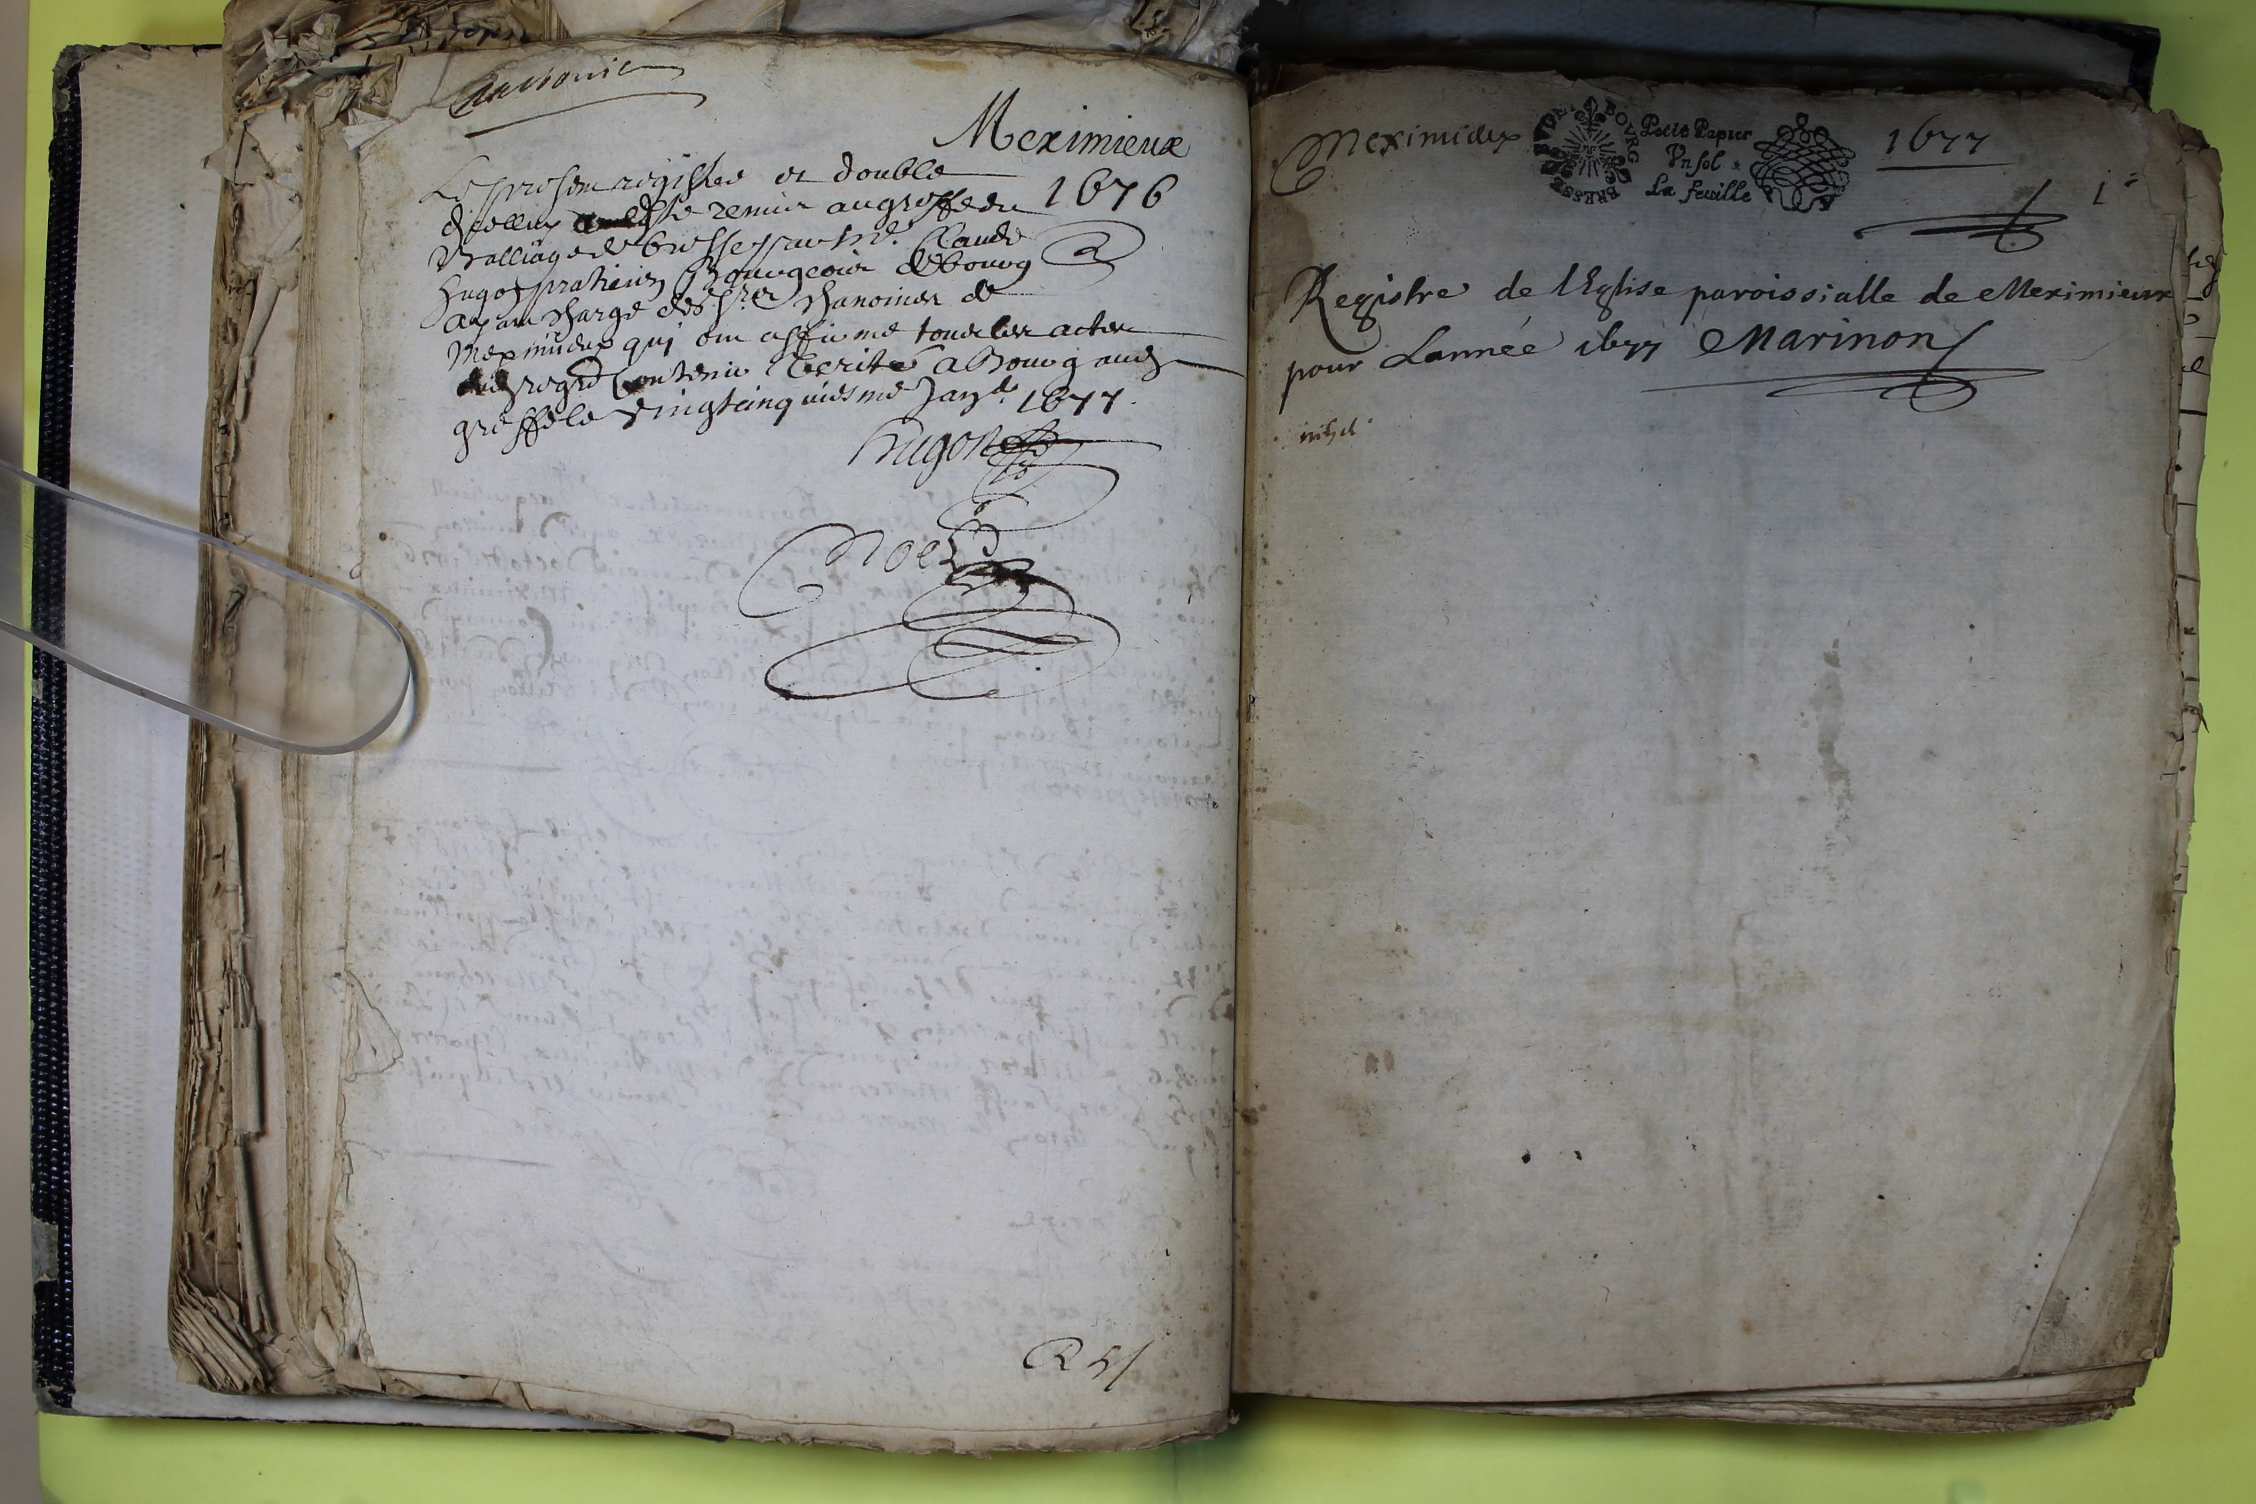 Meximieux
1676
Le present registre et double
dicelluy este remis au greffe du
Balliage de bresse par me. Claude
hugon praticien Bourgeois de bourg
ayant charge des srs. chanoines de
Meximieux qui ont affirmé tous les actes
contenir verité a Bourg aud
greffe le vingtcinquiesme Janv. 1677.
hugon
R 5
Meximieux
BOVRG
BRESSE
Petit Papier
Vn sol
La feuille
1677
1
Registre de l'Eglise paroissialle de Meximieux
pour Lannée 1677 Marinon